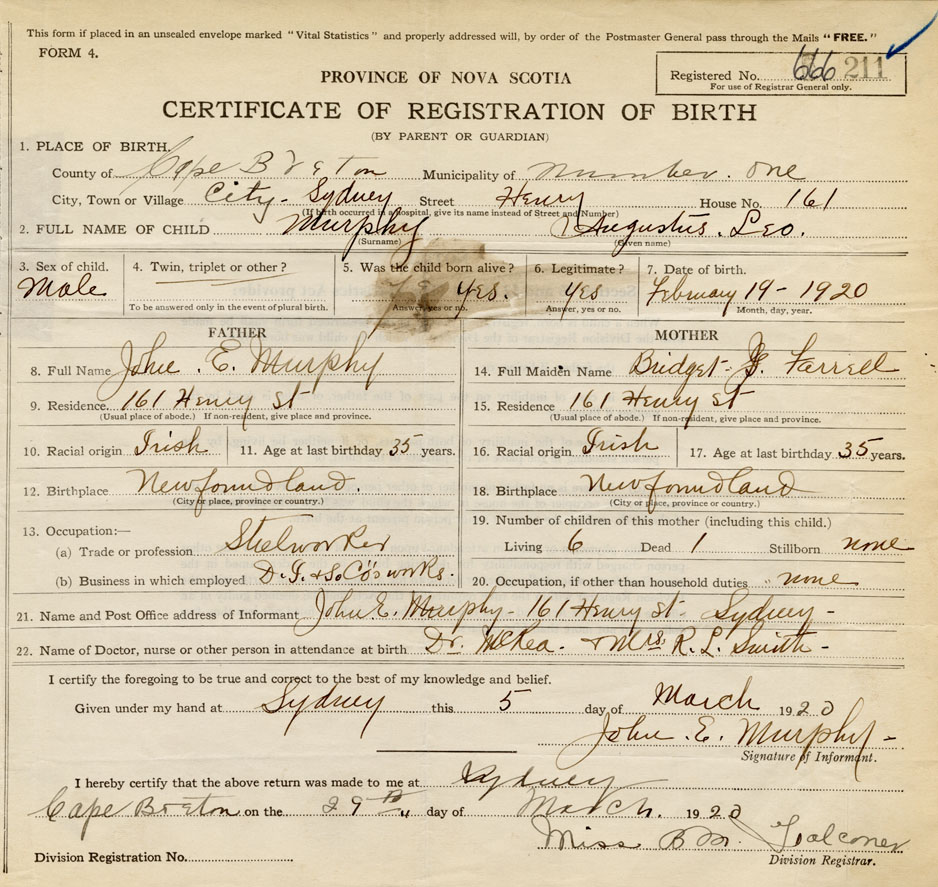 This form if placed in an unsealed envelope marked "Vital Statistics" and properly addressed will, by order of the Postmaster General pass through the Mails "FREE."
FORM 4.
Registered No. 666 211
For use of Registrar General only.
PROVINCE OF NOVA SCOTIA
CERTIFICATE OF REGISTRATION OF BIRTH
(BY PARENT OR GUARDIAN)
1. PLACE OF BIRTH.
County of Cape Breton Municipality of Number. One
City, Town or Village City- Sydney Street Henry House No. 161
(If birth occurred in a hospital, give its name instead of Street and Number)
2. FULL NAME OF CHILD Murphy Augustus. Leo.
(Surname) (Given name)
3. Sex of child. 4. Twin, triplet or other? 5. Was the child born alive? 6. Legitimate? 7. Date of birth.
Male yes. yes February 19 - 1920
To be answered only in the event of plural birth. Answer, yes or no. Answer, yes or no. Month, day, year.
FATHER MOTHER
8. Full Name John E. Murphy 14. Full Maiden Name Bridget J. Farrell
9. Residence 161 Henry St 15. Residence 161 Henry St
(Usual place of abode.) If non-resident, give place and province. (Usual place of abode.) If non-resident, give place and province.
10. Racial origin Irish 11. Age at last birthday 35 years. 16. Racial origin Irish 17. Age at last birthday 35 years.
12. Birthplace Newfoundland. 18. Birthplace Newfoundland
(City or place, province or country.) (City or place, province or country.)
13. Occupation:— 19. Number of children of this mother (including this child.)
(a) Trade or profession Steelworker Living 6 Dead 1 Stillborn none
(b) Business in which employed D. I. & S. Co's works. 20. Occupation, if other than household duties none
21. Name and Post Office address of Informant John E. Murphy - 161 Henry St - Sydney -
22. Name of Doctor, nurse or other person in attendance at birth Dr. McRea. & Mrs R. L. Smith -
I certify the foregoing to be true and correct to the best of my knowledge and belief.
Given under my hand at Sydney this 5 day of March 1920
John E. Murphy -
Signature of Informant.
I hereby certify that the above return was made to me at Sydney
Cape Breton on the 29th day of March. 1920
Miss B M. Falconer
Division Registration No. Division Registrar.